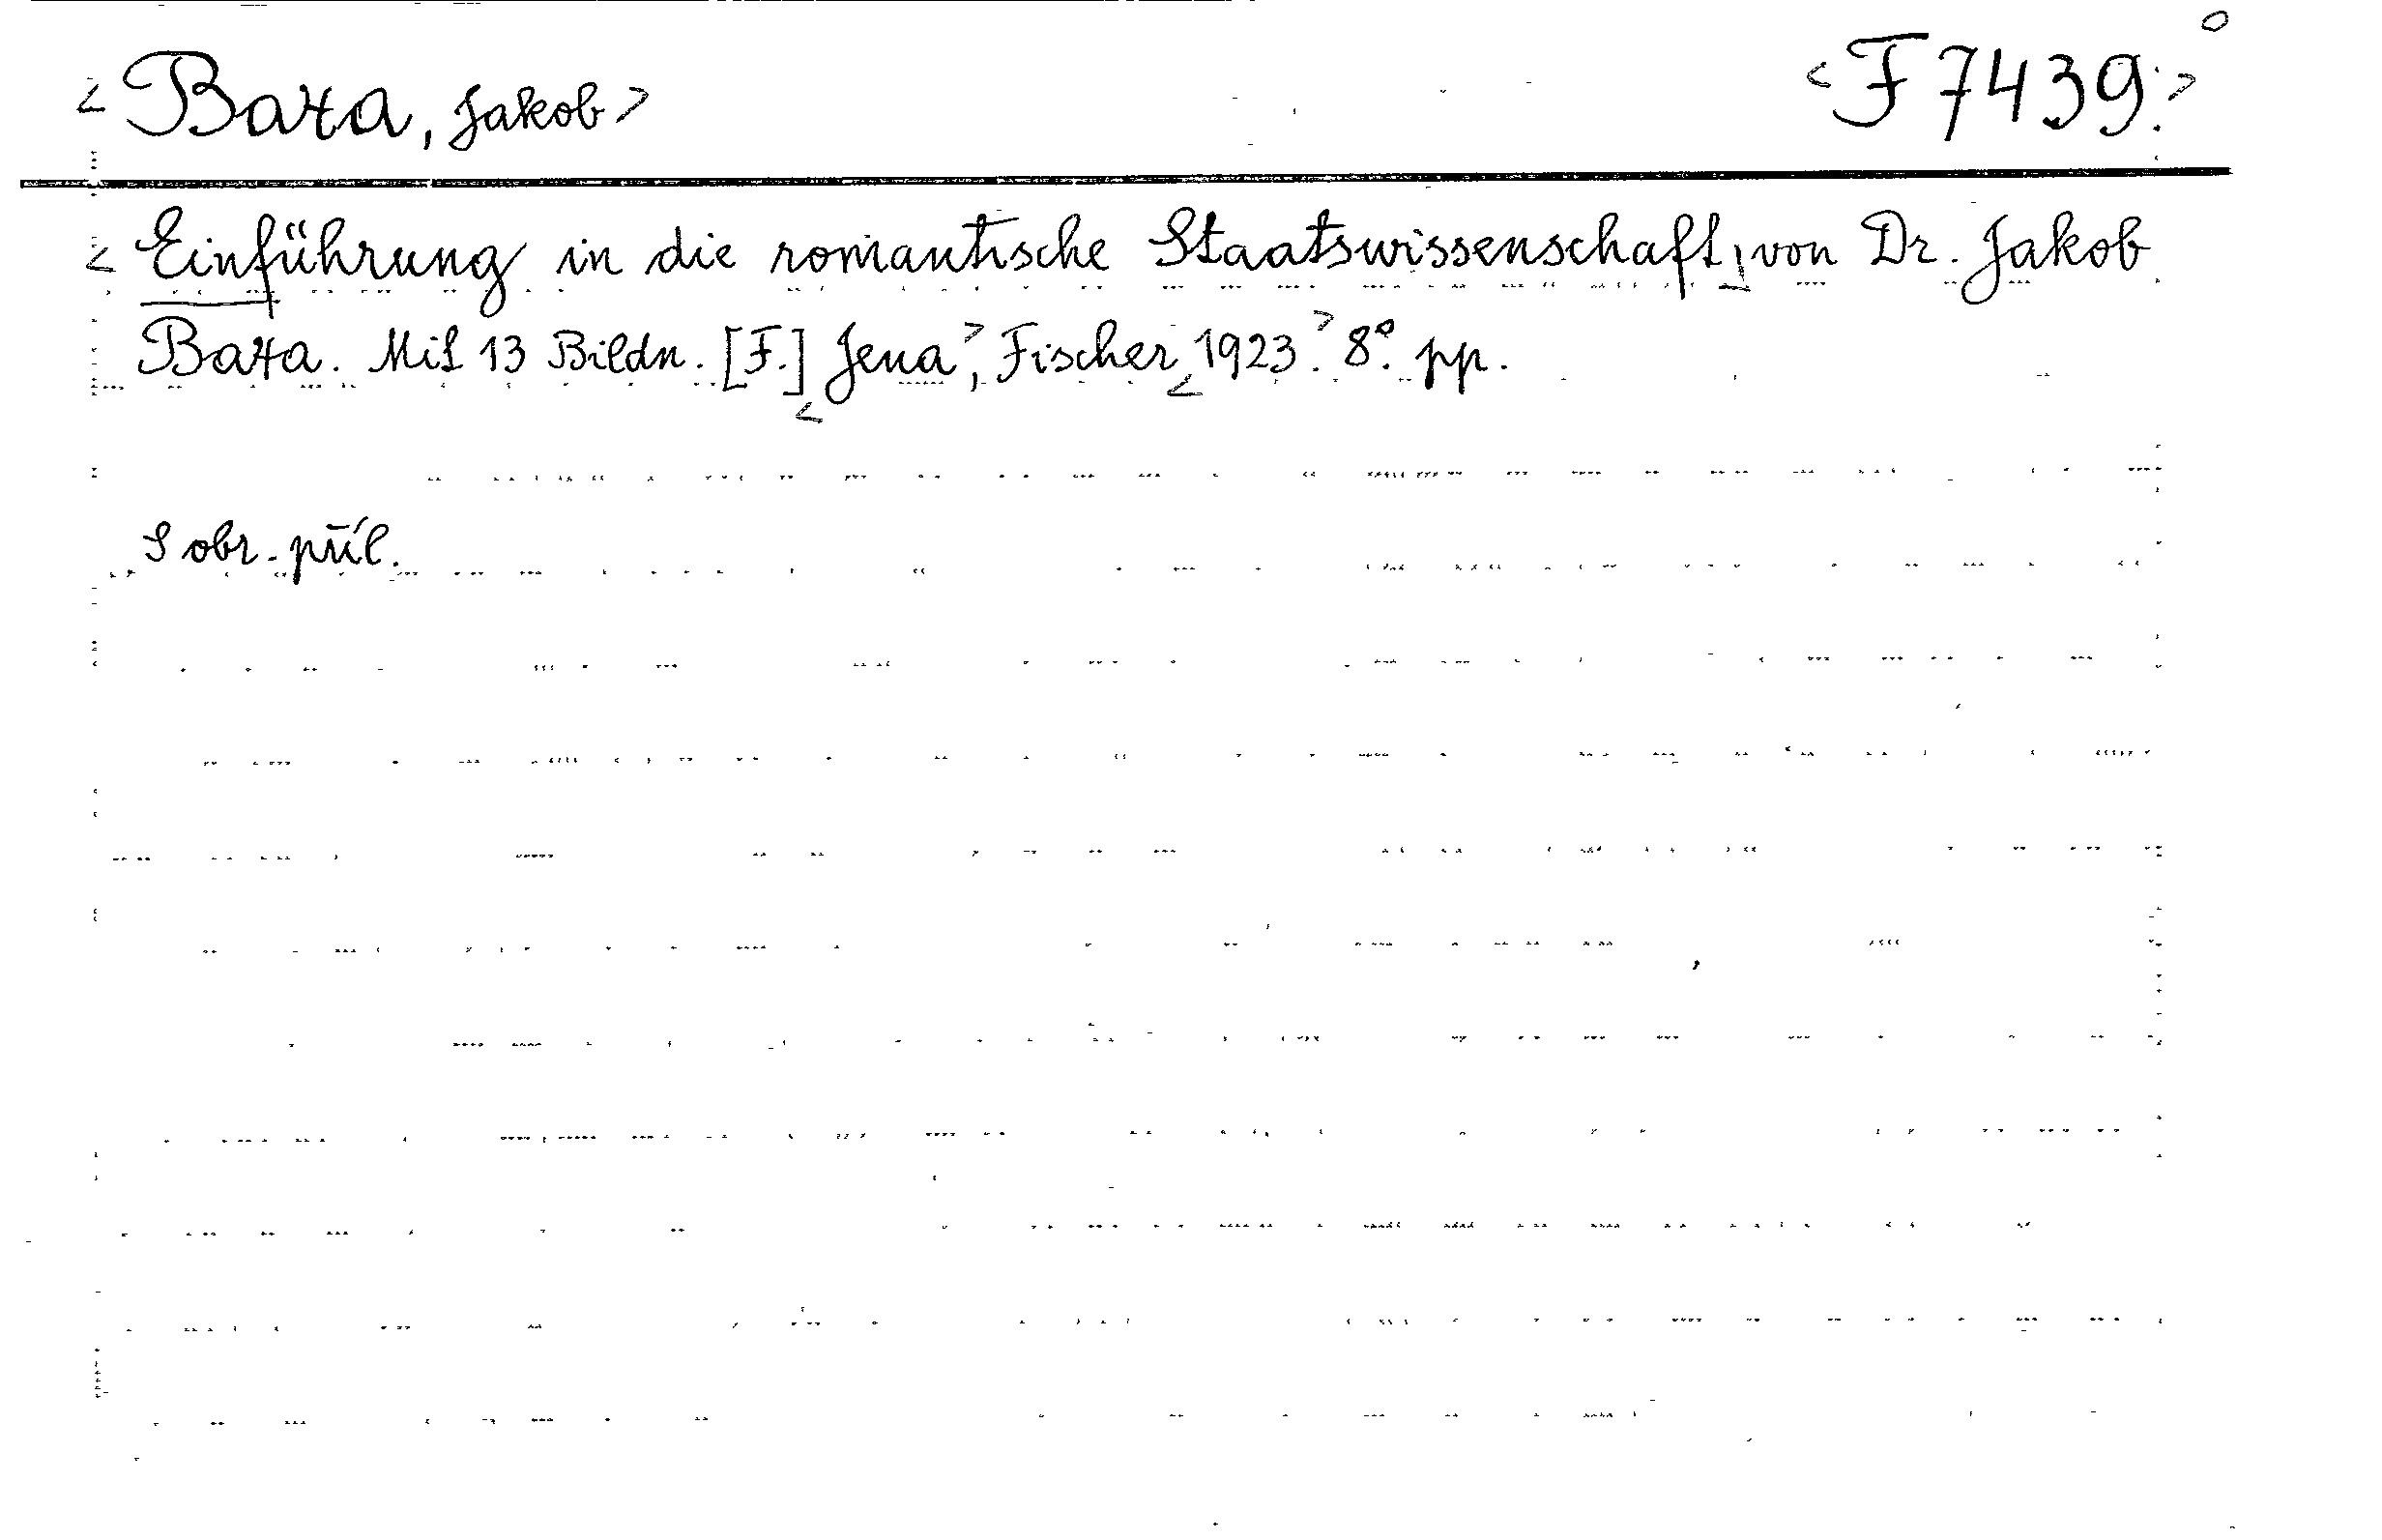 <Baxa, Jakob> <F 7439.>
<Einführung in die romantische Staatswissenschaft, von Dr. Jakob
Baxa. Mit 13 Bildn. [F.] <Jena>, Fischer, <1923>. 8°. pp.
S obr. příl.